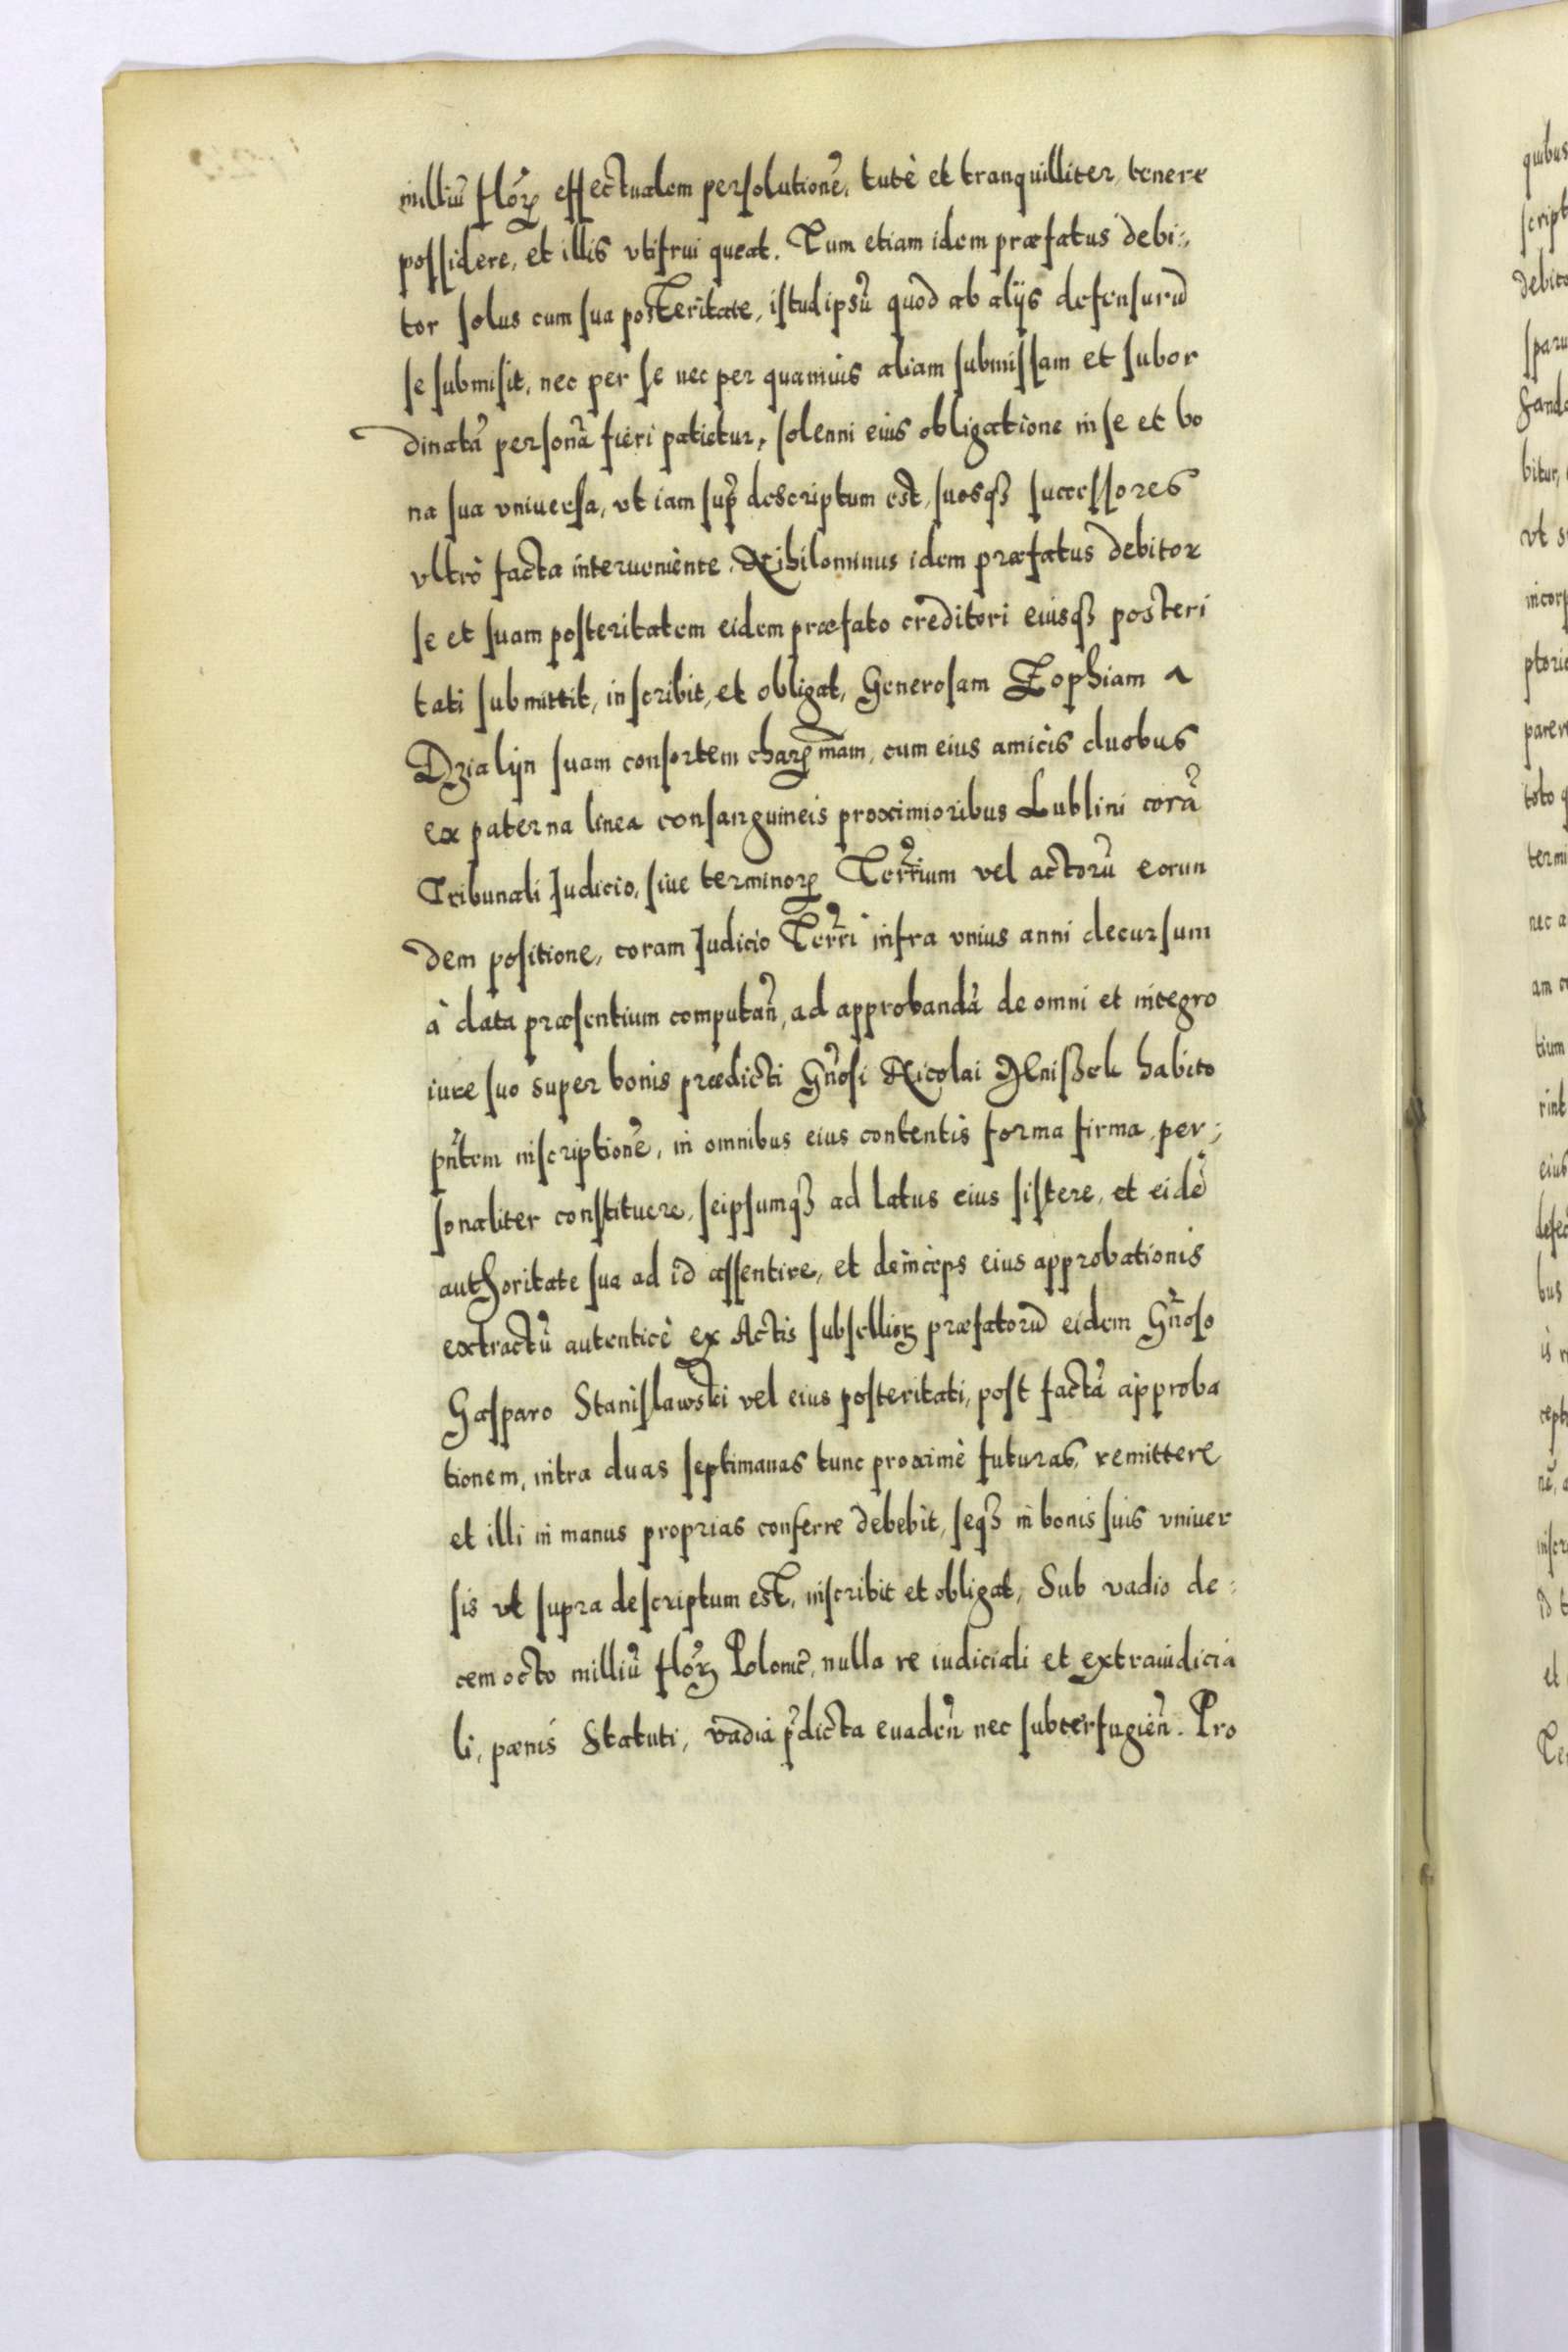 milliũ floꝝ effectualem persolutionẽ, tutè et tranquilliter, tenere
possidere, et illis vtifrui queat. Tum etiam idem præfatus debi:,
tor solus cum sua posteritate, istud ipsũ quod ab alijs defensurũ
se submisit, nec per se nec per quamuis aliam submissam et subor
dinatã personã fieri patietur, solenni eius obligatione in se et bo
na sua vniuersa, vt iam sup̃ descriptum est, suosqꝫ successores
vltrò facta interueniente. Nihilominus idem præfatus debitor
se et suam posteritatem eidem præfato creditori eiusqꝫ posteri
tati submittit, inscribit, et obligat, Generosam Zophiam a
Dzialijn suam consortem chaꝝmam, cum eius amicis duobus
ex paterna linea consanguineis proximioribus Lublini corã
Tribunali Iudicio, siue terminoꝝ Terr̃ium vel actorũ eorun
dem positione, coram Iudicio Terr̃i infra vnius anni decursum
à data præsentium computañ, ad approbandã de omni et integro
iure suo super bonis prædicti Gñosi Nicolai Mniszek habito
pñtem inscriptionẽ, in omnibus eius contentis forma firma, per;
sonaliter constituere, seipsumqꝫ ad latus eius sistere, et eidẽ
authoritate sua ad id assentire, et deinceps eius approbationis
extractũ autenticè ex Actis subsellioꝝ præfatorũ eidem Gñoso
Gasparo Stanislawski vel eius posteritati, post factã approba
tionem, intra duas septimanas tunc proximè futuras, remittere
et illi in manus proprias conferre debebit, seqꝫ in bonis suis vniuer
sis vt supra descriptum est, inscribit et obligat, Sub vadio de:
cem octo milliũ floꝝ Poloniẽ, nulla re iudiciali et extraiudicia
li, pænis Statuti, vadia p̃dicta euadeñ nec subterfugieñ. Pro